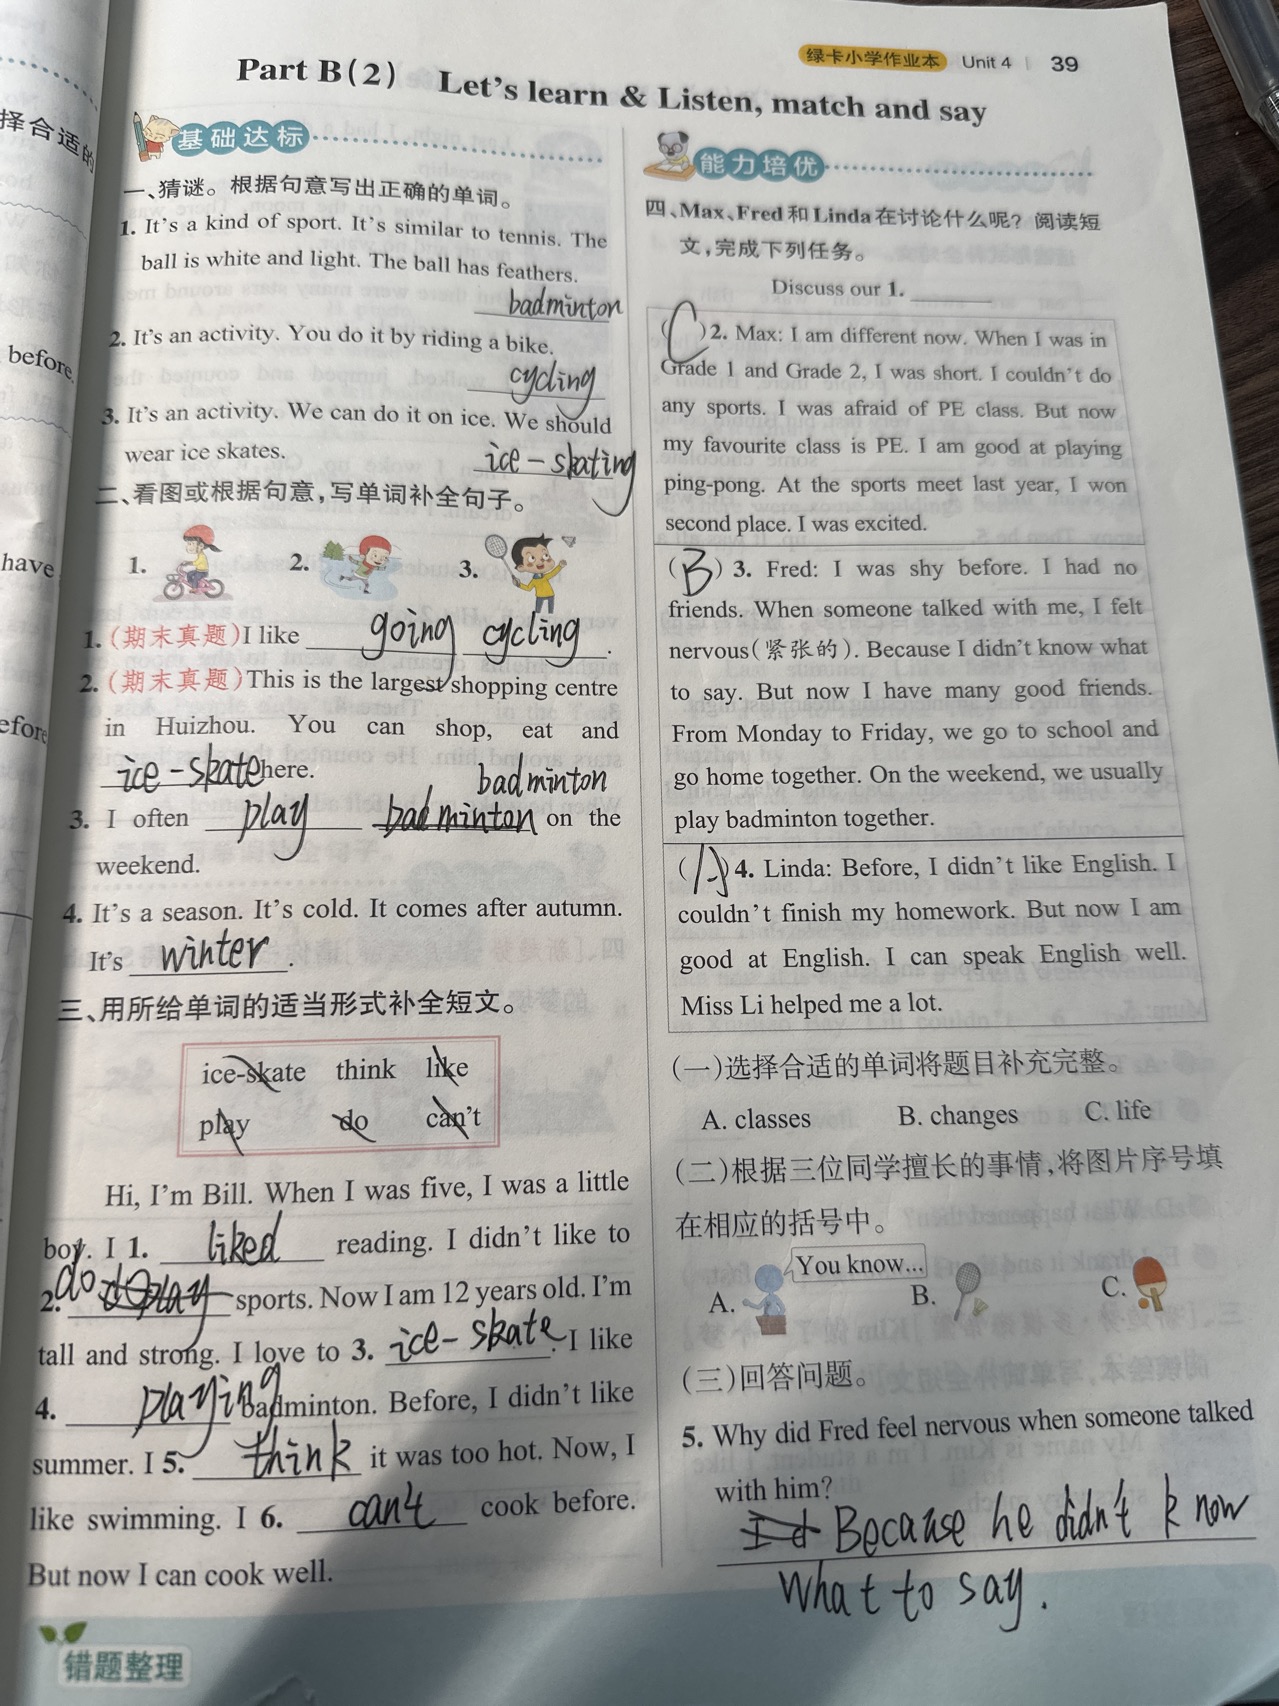 绿卡小学作业本 Unit 4 39
Part B(2) Let's learn & Listen, match and say
择合适的
before.
have
efore
基础达标
一、猜谜。根据句意写出正确的单词。
1. It's a kind of sport. It's similar to tennis. The
ball is white and light. The ball has feathers.
badminton
2. It's an activity. You do it by riding a bike.
cycling
3. It's an activity. We can do it on ice. We should
wear ice skates. ice-skating
二、看图或根据句意,写单词补全句子。
1. 2. 3.
1. (期末真题)I like going cycling.
2. (期末真题)This is the largest shopping centre
in Huizhou. You can shop, eat and
ice-skate here.
badminton
3. I often play badminton on the
weekend.
4. It's a season. It's cold. It comes after autumn.
It's winter.
三、用所给单词的适当形式补全短文。
ice-skate think like
play do can't
Hi, I'm Bill. When I was five, I was a little
boy. I 1. liked reading. I didn't like to
2. do play sports. Now I am 12 years old. I'm
tall and strong. I love to 3. ice-skate. I like
4. playing badminton. Before, I didn't like
summer. I 5. think it was too hot. Now, I
like swimming. I 6. can't cook before.
But now I can cook well.
错题整理
能力培优
四、Max、Fred和Linda在讨论什么呢? 阅读短
文,完成下列任务。
Discuss our 1. ______
(C)2. Max: I am different now. When I was in
Grade 1 and Grade 2, I was short. I couldn't do
any sports. I was afraid of PE class. But now
my favourite class is PE. I am good at playing
ping-pong. At the sports meet last year, I won
second place. I was excited.
(B)3. Fred: I was shy before. I had no
friends. When someone talked with me, I felt
nervous(紧张的). Because I didn't know what
to say. But now I have many good friends.
From Monday to Friday, we go to school and
go home together. On the weekend, we usually
play badminton together.
(A)4. Linda: Before, I didn't like English. I
couldn't finish my homework. But now I am
good at English. I can speak English well.
Miss Li helped me a lot.
(一)选择合适的单词将题目补充完整。
A. classes B. changes C. life
(二)根据三位同学擅长的事情,将图片序号填
在相应的括号中。
You know...
A. B. C.
(三)回答问题。
5. Why did Fred feel nervous when someone talked
with him?
Because he didn't know
what to say.